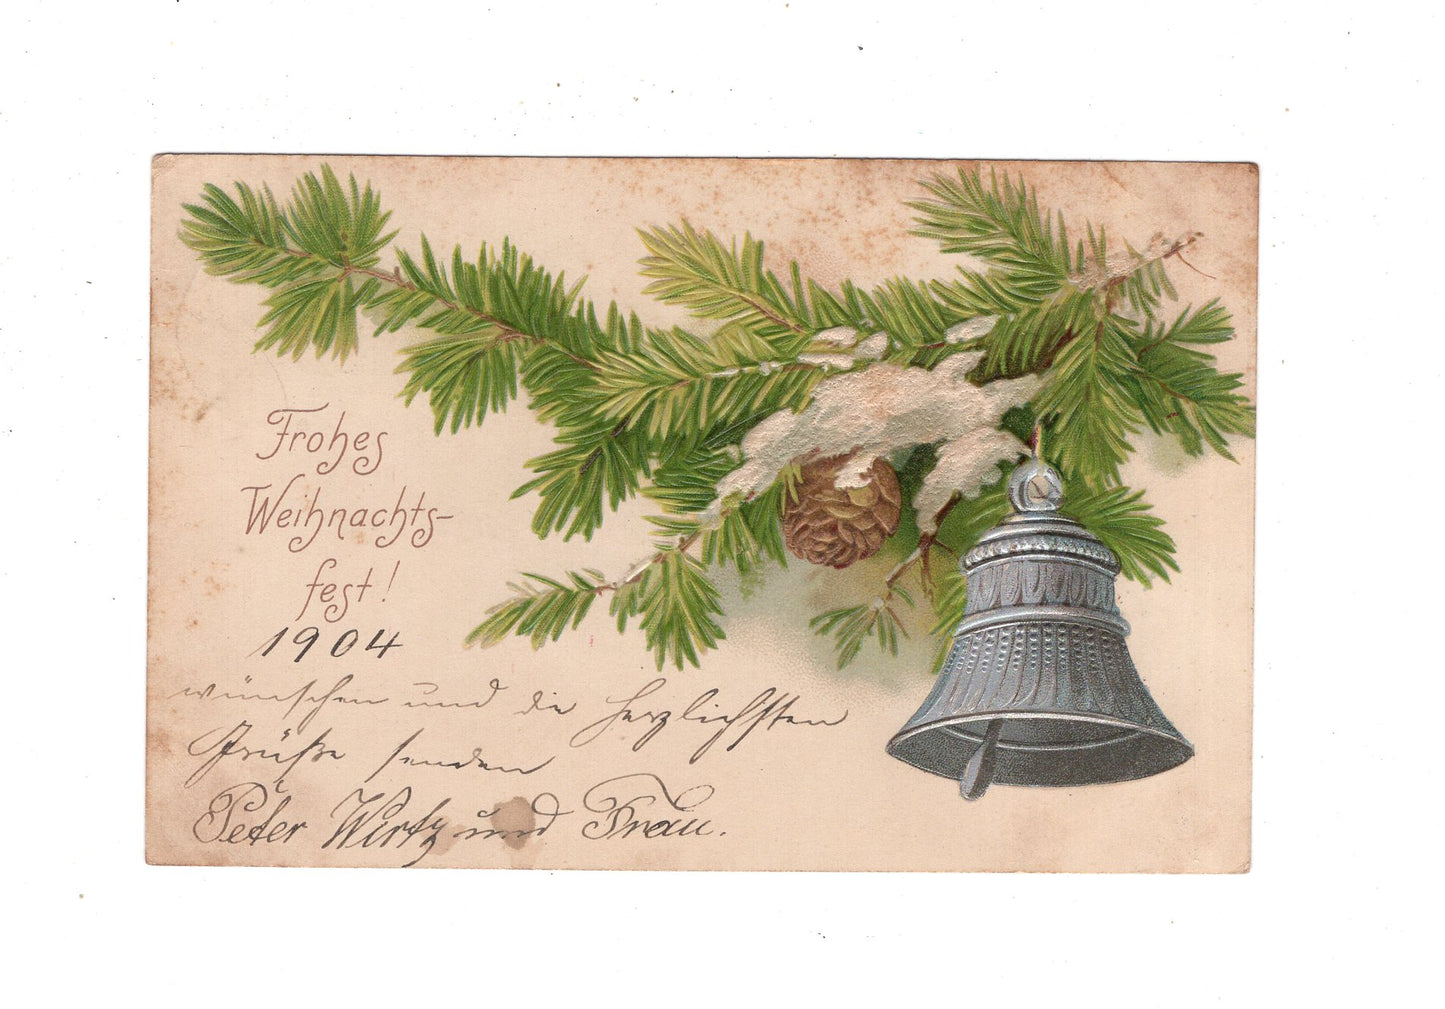 Frohes
Weihnachts-
fest!
1904
wünschen und die herzlichsten
Grüße senden
Peter Wirtz und Frau.